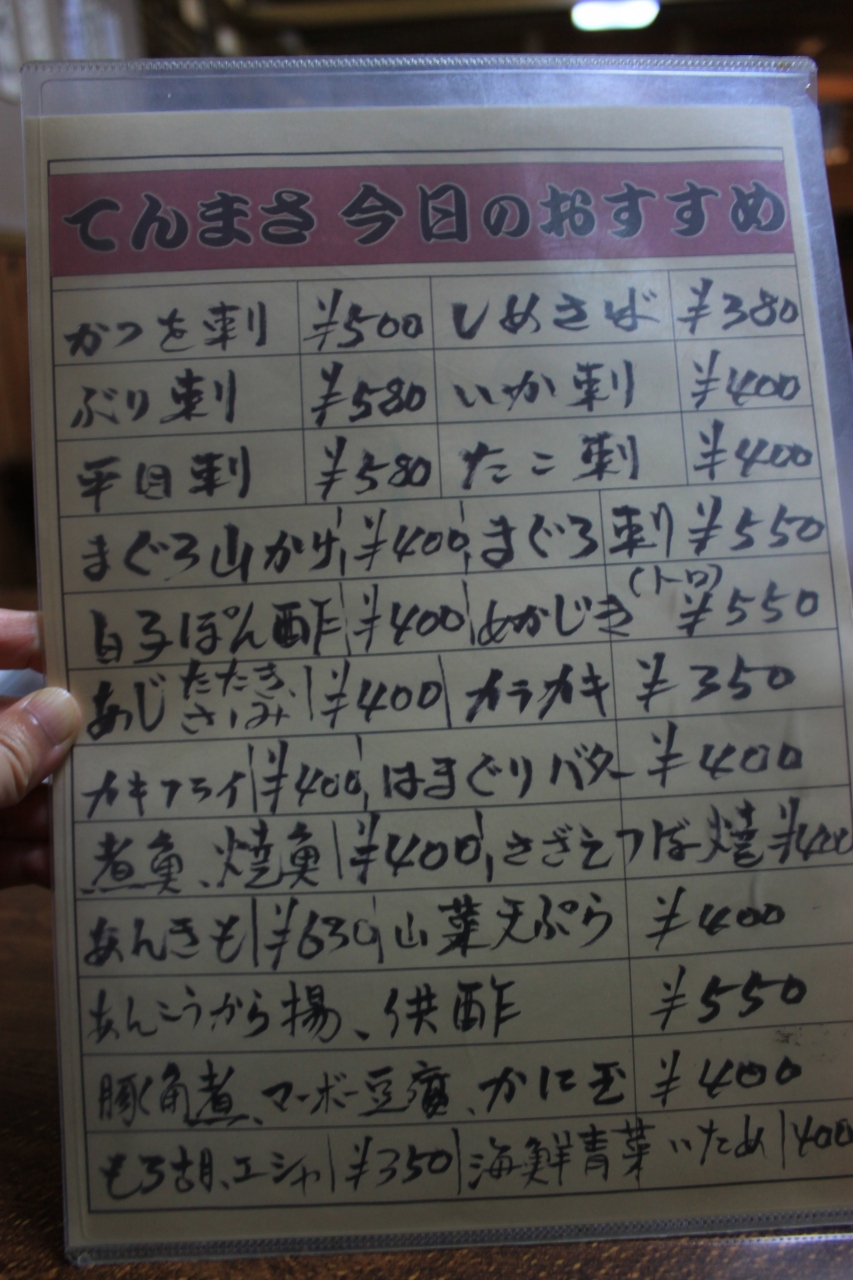 てんまさ 今日のおすすめ
かつを刺 ¥500 しめさば ¥380
ぶり刺 ¥580 いか刺 ¥400
平目刺 ¥580 たこ刺 ¥400
まぐろ山かけ ¥400 まぐろ刺 ¥550
白子ぽん酢 ¥400 めかじき(トロ) ¥550
あじ たたき、さしみ ¥400 カラカキ ¥350
カキフライ ¥400 はまぐりバター ¥400
煮魚、焼魚 ¥400 さざえつぼ焼 ¥400
あんきも ¥630 山菜天ぷら ¥400
あんこうから揚、供酢 ¥550
豚角煮、マーボー豆腐、かに玉 ¥400
もろ胡、エシャ ¥350 海鮮青菜いため 400